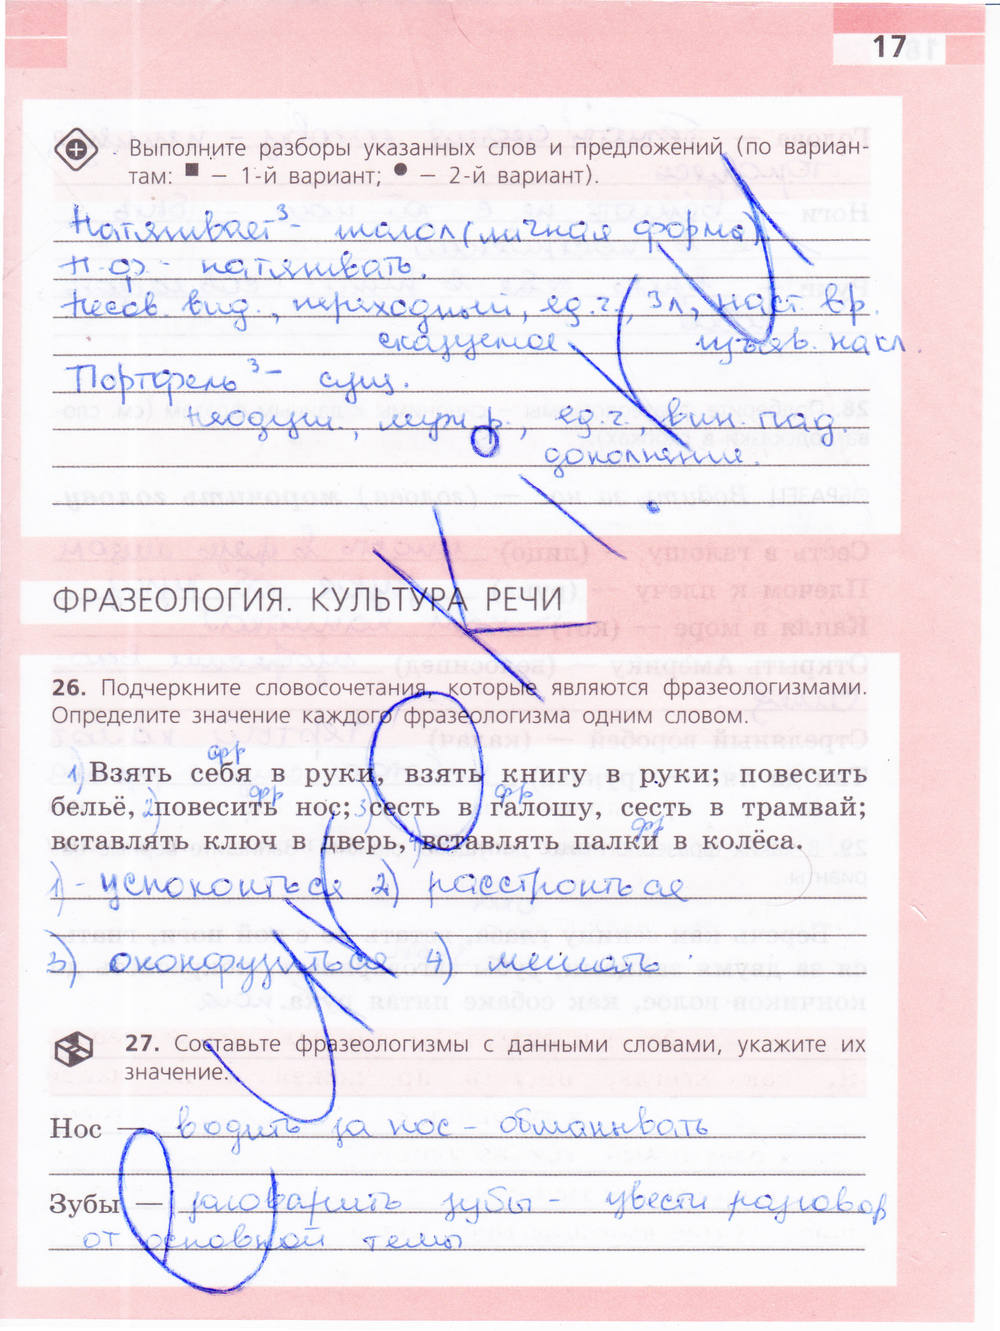 17
Выполните разборы указанных слов и предложений (по вариан-
там: ■ – 1-й вариант; ● – 2-й вариант).
Натягивает³ - глагол (личная форма)
Н.ф - натягивать.
Несов. вид., переходный, ед.ч., 3л, наст. вр.
сказуемое изъяв. накл.
Портфель³ - сущ.
неодуш., муж.р., ед.ч., вин. пад.
дополнение.
ФРАЗЕОЛОГИЯ. КУЛЬТУРА РЕЧИ
26. Подчеркните словосочетания, которые являются фразеологизмами.
Определите значение каждого фразеологизма одним словом.
фр
1) Взять себя в руки, взять книгу в руки; повесить
фр фр
бельё, 2) повесить нос; 3) сесть в галошу, сесть в трамвай;
фр
вставлять ключ в дверь, 4) вставлять палки в колёса.
1) - успокоиться 2) расстроиться
3) оконфузиться 4) мешать
27. Составьте фразеологизмы с данными словами, укажите их
значение.
Нос — водить за нос - обманывать
Зубы — заговарить зубы - увести разговор
от основной темы